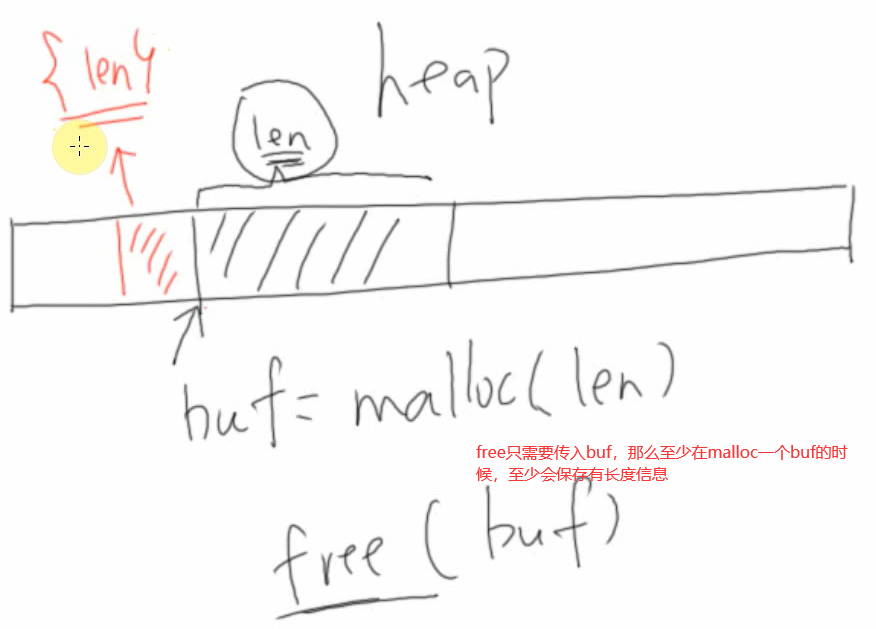 {len}
heap
len
buf = malloc(len)
free只需要传入buf，那么至少在malloc一个buf的时
候，至少会保存有长度信息
free(buf)